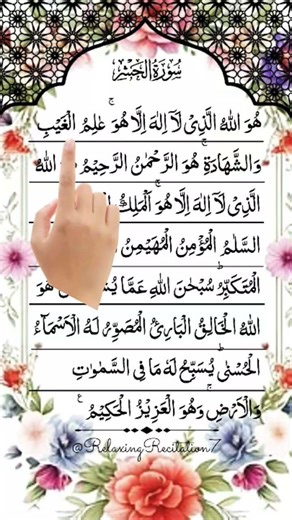 سُوۡرَةُ الۡحَشۡرِ
هُوَ اللّٰهُ الَّذِىۡ لَاۤ اِلٰهَ اِلَّا هُوَ ۚ عٰلِمُ الۡغَيۡبِ
وَالشَّهَادَةِ ۚ هُوَ الرَّحۡمٰنُ الرَّحِيۡمُ اللّٰهُ
الَّذِىۡ لَاۤ اِلٰهَ اِلَّا هُوَ ۚ اَلۡمَلِكُ
السَّلٰمُ الۡمُؤۡمِنُ الۡمُهَيۡمِنُ
الۡمُتَكَبِّرُ ؕ سُبۡحٰنَ اللّٰهِ عَمَّا هُوَ
اللّٰهُ الۡخَالِقُ الۡبَارِئُ الۡمُصَوِّرُ لَهُ الۡاَسۡمَآءُ
الۡحُسۡنٰى ؕ يُسَبِّحُ لَهٗ مَا فِى السَّمٰوٰتِ
وَالۡاَرۡضِ ۚ وَهُوَ الۡعَزِيۡزُ الۡحَكِيۡمُ
@RelaxingRecitation7